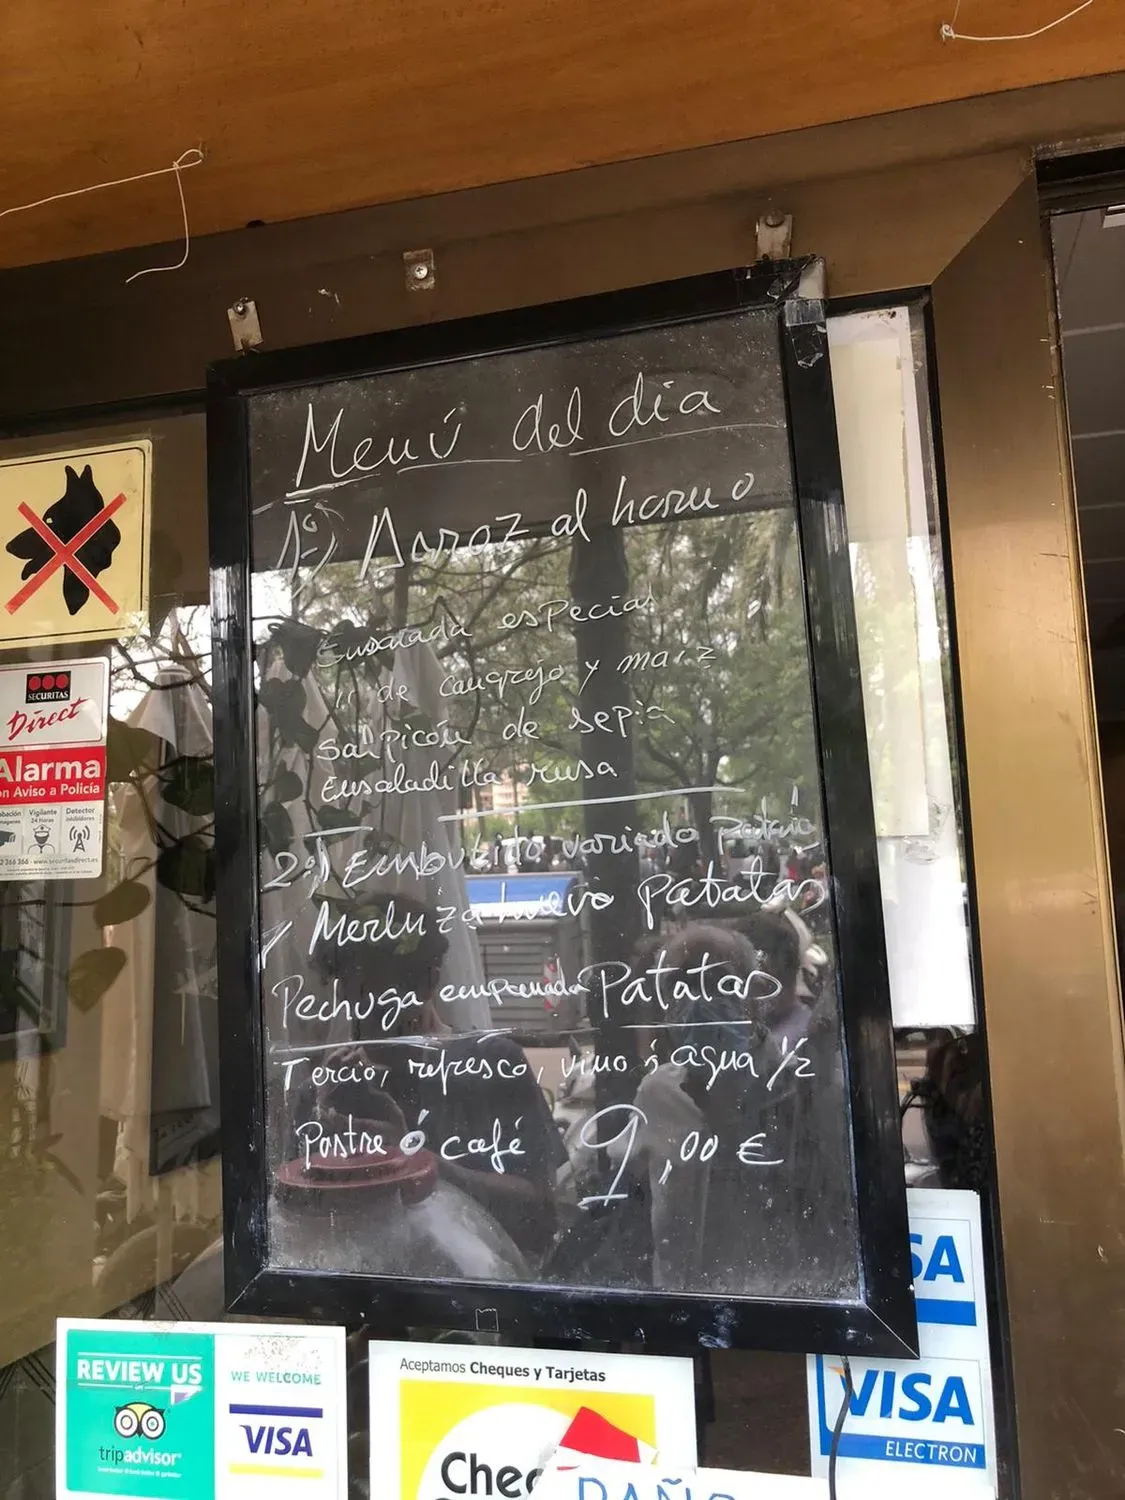 Menú del dia
1º) Arroz al horno
Ensalada especial
" de cangrejo y maiz
Salpicón de sepia
Ensaladilla rusa
2º) Embutido variado Patatas
Merluza huevo Patatas
Pechuga empanada Patatas
Tercio, refresco, vino ó agua 1/2
Postre ó café 9,00 €
SECURITAS
Direct
Alarma
on Aviso a Policía
Vigilante
24 Horas
Detector
inhibidores
www.securitasdirect.es
REVIEW US
tripadvisor
WE WELCOME
VISA
Aceptamos Cheques y Tarjetas
Cheq
DAÑO
SA
VISA
ELECTRON